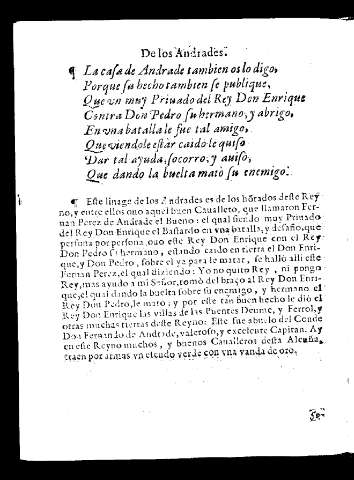 De los Andrades.
¶ La casa de Andrade tambien os lo digo,
Porque su hecho tambien se publique,
Que vn muy Priuado del Rey Don Enrique
Contra Don Pedro su hermano, y abrigo,
En vna batalla le fue tal amigo,
Que viendole estar caido le quiso
Dar tal ayuda, socorro, y auiso,
Que dando la buelta mató su enemigo.
¶ Este linage de los Andrades es de los hõrados deste Rey
no, y entre ellos ono aquel buen Cauallero, que llamaron Fer-
nan Perez de Andrade el Bueno: el qual siendo muy Priuado
del Rey Don Enrique el Bastardo en vna batalla, y desafio, que
persona por persona ouo este Rey Don Enrique con el Rey
Don Pedro su hermano, estando caido en tierra el Don Enri-
que, y Don Pedro, sobre el ya para le matar, se halló alli este
Fernan Perez, el qual diziendo: Yo no quito Rey, ni pongo
Rey, mas ayudo a mi Señor, tomó del braço al Rey Don Enri-
que, el qual dando la buelta sobre su enemigo, y hermano el
Rey Don Pedro, le mató: y por este tan buen hecho le dió el
Rey Don Enrique las villas de las Puentes Deume, y Ferrol, y
otras muchas tierras deste Reyno: Este fue abuelo del Conde
Don Fernando de Andrade, valeroso, y excelente Capitan. Ay
en este Reyno muchos, y buenos Caualleros desta Alcuña,
traen por armas vn escudo verde con vna vanda de oro,